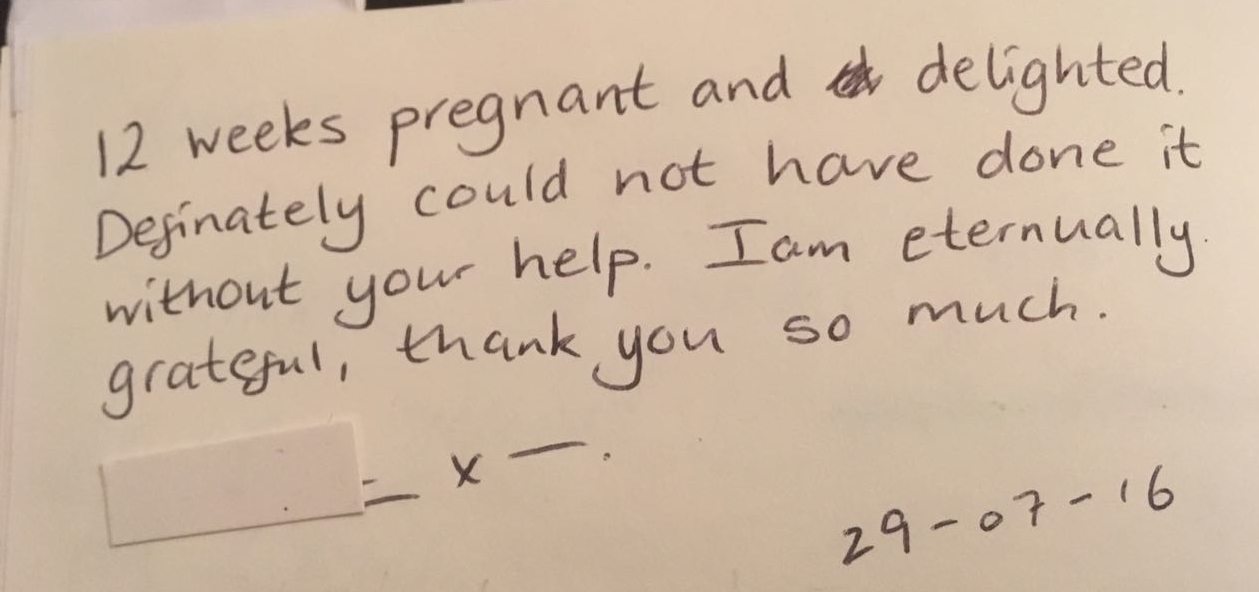 12 weeks pregnant and delighted.
Definately could not have done it
without your help. I am eternually
grateful, thank you so much.
x
29-07-16